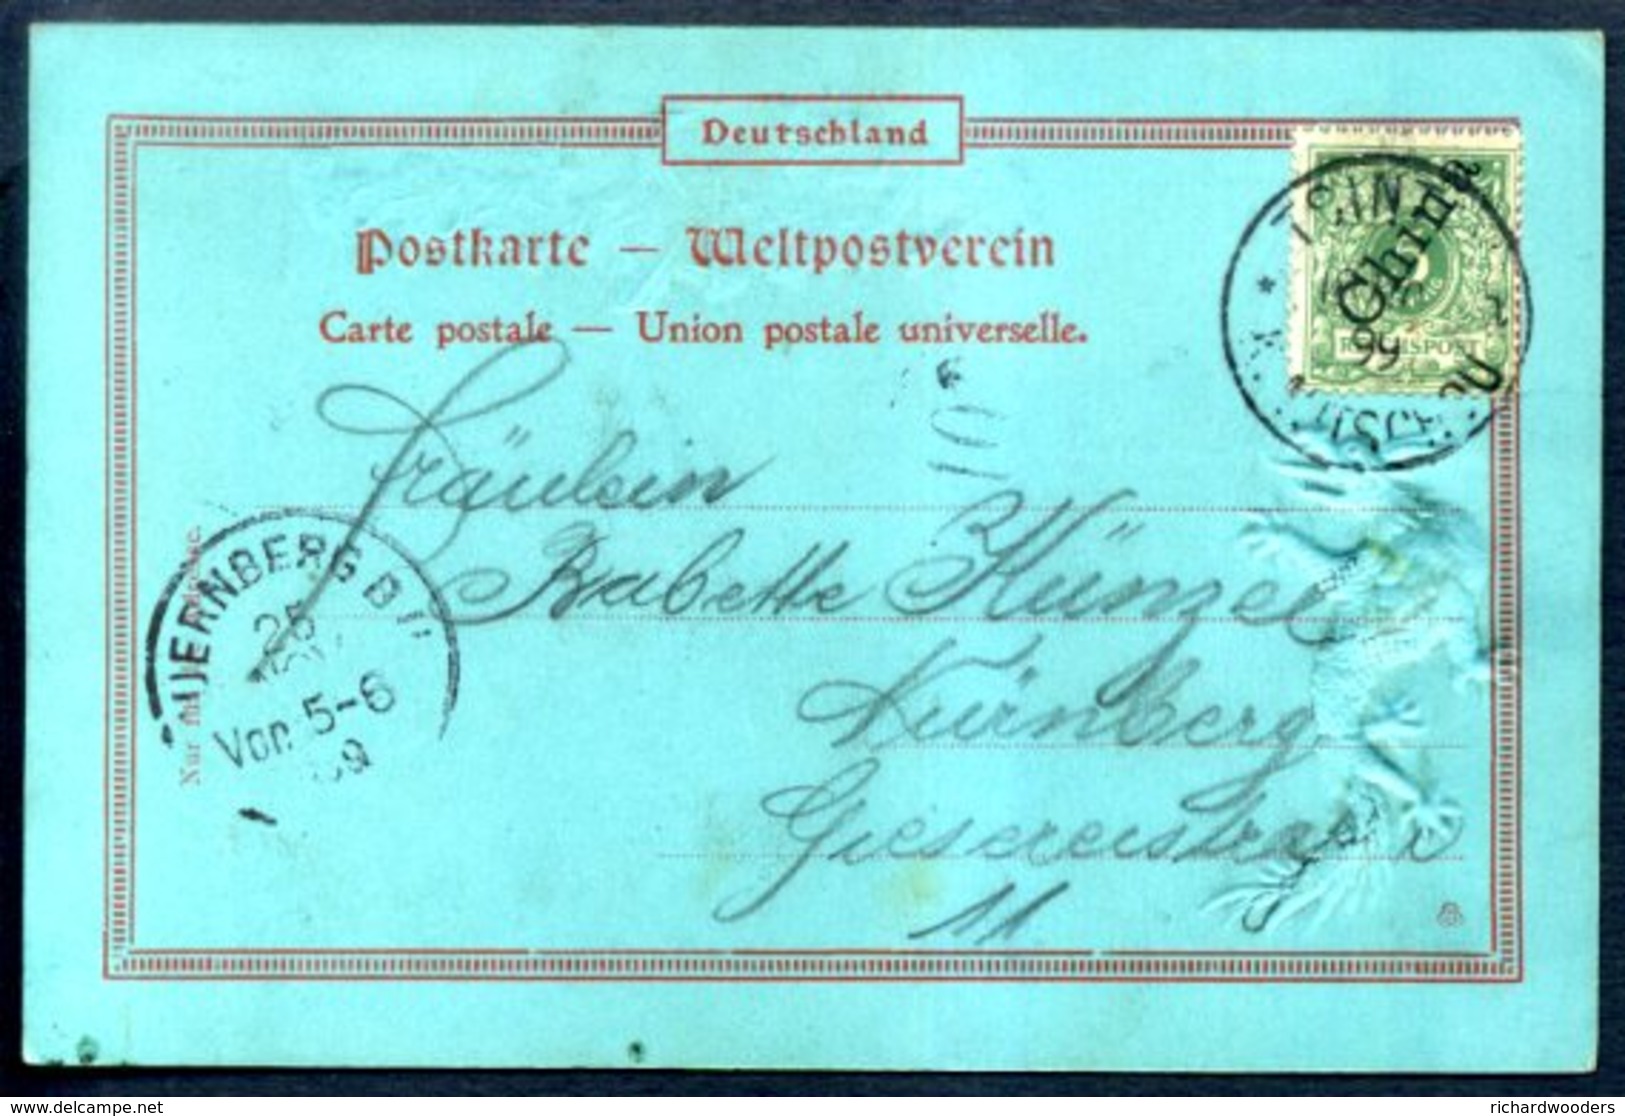 Deutschland
Postkarte — Weltpostverein
Carte postale — Union postale universelle.
China
REICHSPOST
99
10
Fräulein
Babette Künzel
Nürnberg
11
NUERNBERG B
25
NOV
Vor. 5-6
99
Nur für
© Delcampe.net
richardwooders